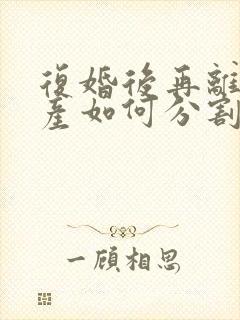 復婚後再離
產如何分割
一顧相思